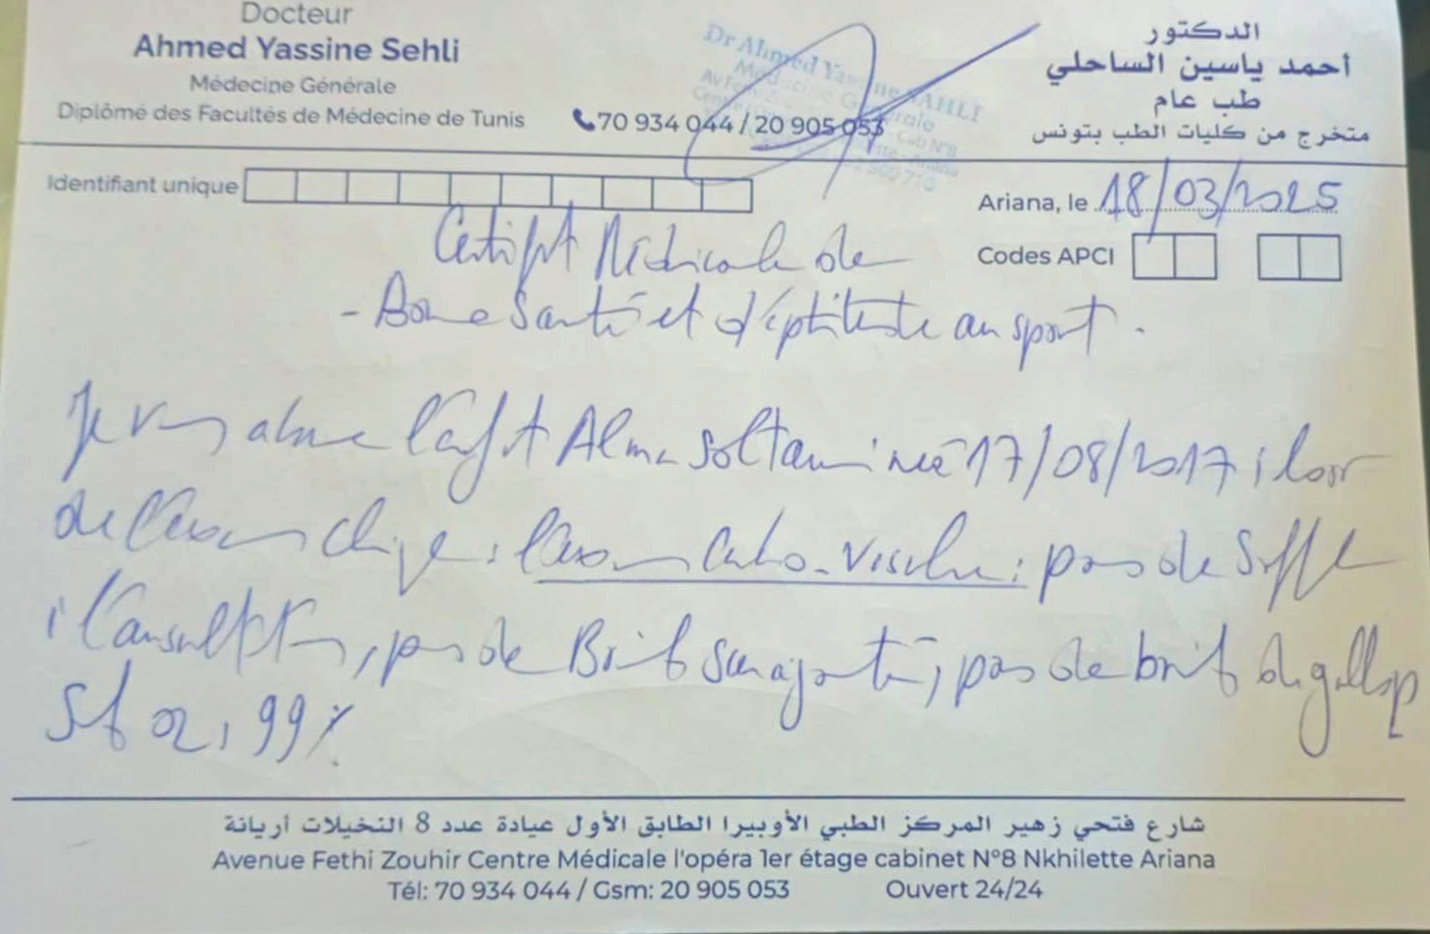 Docteur
Ahmed Yassine Sehli
Médecine Générale
Diplômé des Facultés de Médecine de Tunis
70 934 044 / 20 905 053
الدكتور
أحمد ياسين الساحلي
طب عام
متخرج من كليات الطب بتونس
Dr Ahmed Yassine SAHLI
Médecine Générale
Identifiant unique
Ariana, le 18/03/2025
Codes APCI
Médicale de
- Bonne Santé et d'aptitude au sport.
Je Alma Soltani née 17/08/2017 lors
de l'examen : l'examen : pas de Souffle
, pas de Bruit surajouté, pas de bruit de gallop
Sat O2, 99%
شارع فتحي زهير المركز الطبي الأوبيرا الطابق الأول عيادة عدد 8 النخيلات أريانة
Avenue Fethi Zouhir Centre Médicale l'opéra 1er étage cabinet N°8 Nkhilette Ariana
Tél: 70 934 044 / Gsm: 20 905 053 Ouvert 24/24